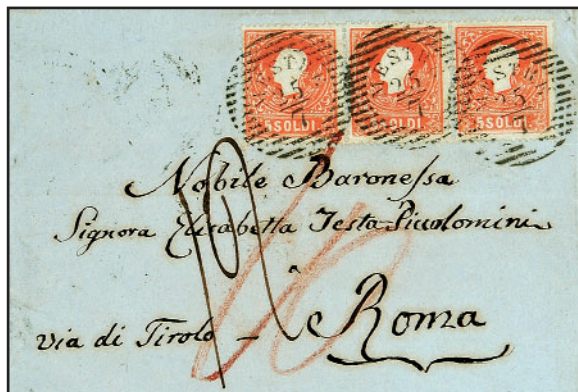 5 SOLDI 5 SOLDI 5 SOLDI
Nobile Baronessa
Signora Elisabetta Testa-Piccolomini
à
Roma
via di Tirolo